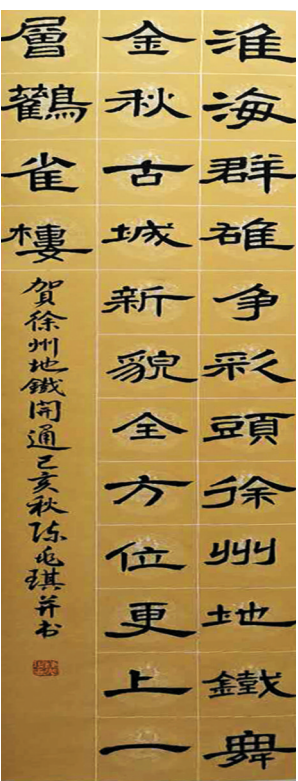 淮海群雄争彩頭徐州地鐵舞
金秋古城新貌全方位更上一
層鸛雀樓
賀徐州地鐵開通己亥秋陈兆琪并书